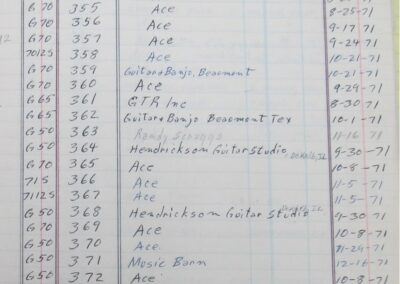 G 70 355 Ace 8-25-71
G70 356 Ace 9-17-71
G70 357 Ace 9-24-71
70125 358 Ace 10-21-71
G70 359 Guitar & Banjo, Beaumont 10-21-71
G70 360 Ace 9-29-71
G65 361 GTR Inc 8-30-71
G65 362 Guitar & Banjo Beaumont Tex 10-1-71
G50 363 Randy Scruggs 11-16-71
G50 364 Hendrickson Guitar Studio 9-30-71
G70 365 Ace 10-8-71
71S 366 Ace 11-5-71
71125 367 Ace 11-5-71
G50 368 Hendrickson Guitar Studio 9-30-71
G70 369 Ace 10-8-71
G50 370 Ace 11-24-71
G50 371 Music Barn 12-16-71
G50 372 Ace 10-8-71